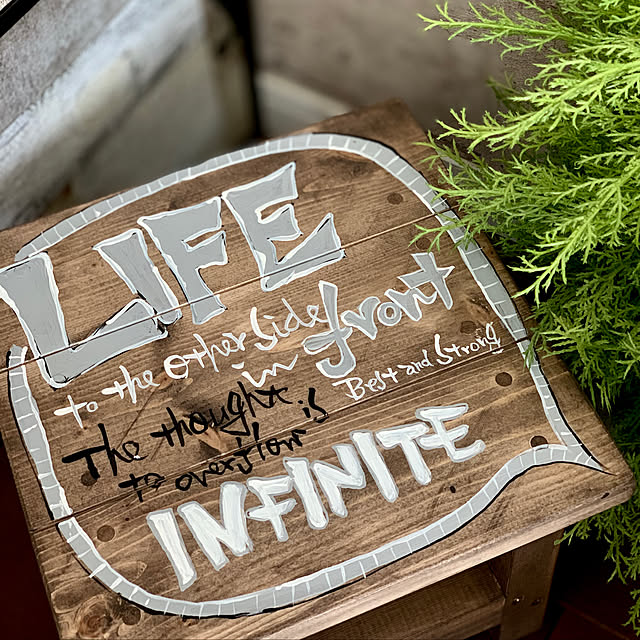 LIFE
to the other side
in front
Best and Strong
The thought is
to overflow
INFINITE